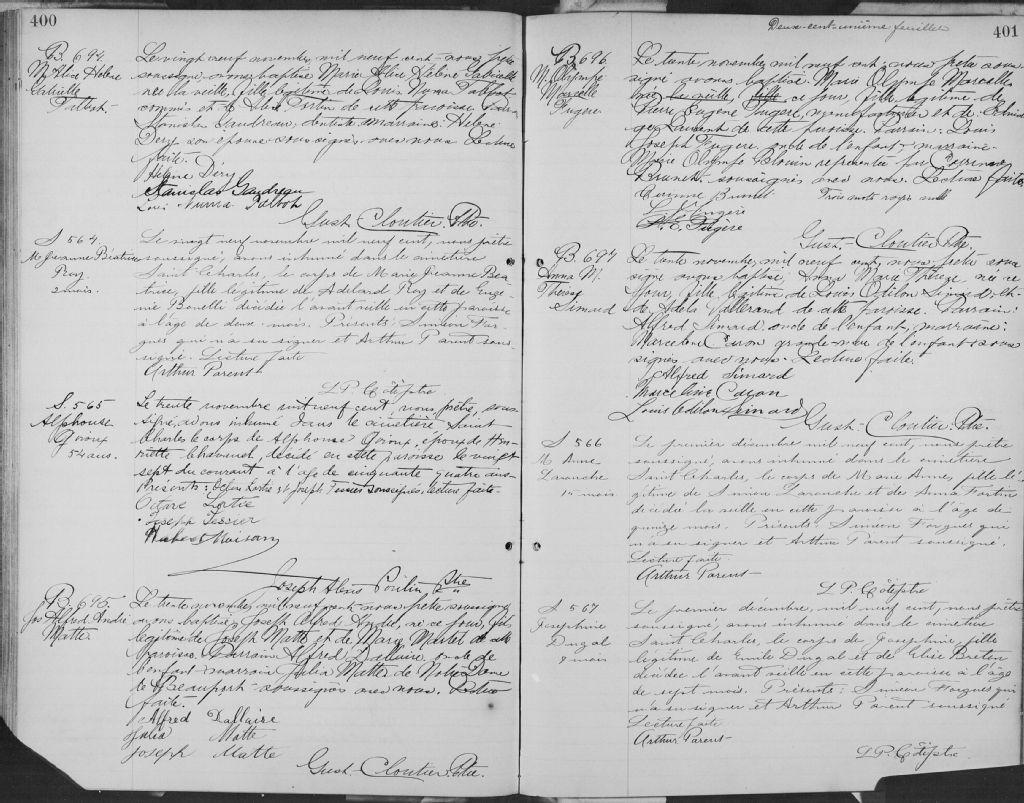 400
B. 694
M. Alice Hélène
Gabrielle
Talbot
Le vingt neuf novembre, mil neuf cent, nous prêtre
soussigné avons baptisé Marie Alice Hélène Gabrielle
née la veille, fille légitime de Louis Numa Talbot
commis et de Alice Fortin de cette paroisse. Parrain
Stanislas Gaudreau, dentiste marraine: Hélène
Dery son épouse soussignés avec nous. Lecture
faite.
Hélène Déry
Stanislas Gaudreau
Louis Numa Talbot
Gust. Cloutier Ptre.
S 564
M. Jeanne Béatrice
Roy
2 mois.
Le vingt neuf novembre mil neuf cent, nous prêtre
soussigné, avons inhumé dans le cimetière
Saint Charles, le corps de Marie Jeanne Béa-
trice, fille légitime de Adelard Roy et de Eugé-
nie décédée l'avant veille en cette paroisse
à l'âge de deux mois. Présents: Simeon Far-
gues qui n'a su signer et Arthur Parent sous-
signé. Lecture faite
Arthur Parent
L. P. Côté ptre
S. 565
Alphonse
Giroux
54 ans.
Le trente novembre mil neuf cent, nous, prêtre, sous-
signé, avons inhumé dans le cimetière Saint
Charles le corps de Alphonse Giroux, époux de Hen-
riette décédé en cette paroisse le vingt
sept du courant à l'âge de cinquante quatre ans.
Présents: Octave Lortie et Joseph Tessier soussignés, lecture faite.
Octave Lortie
Joseph Tessier
Hubert Moisan
Joseph Alexis Poulin Ptre
B. 695.
Jos Alfred André
Matte.
Le trente novembre, mil neuf cent nous prêtre soussigné
avons baptisé Joseph Alfred André, né ce jour, fils
légitime de Joseph Matte et de Marie Martel de cette
paroisse. Parrain Alfred Dallaire, oncle de
l'enfant marraine Julia Matte de Notre-Dame
de Beauport soussignés avec nous. Lecture
faite.
Alfred Dallaire
Julia Matte
Joseph Matte
Gust. Cloutier Ptre.
Deux-cent-unième feuillet
401
B. 696
M. Olympe
Marcelle
Fugère
Le trente novembre, mil neuf cent, nous prêtre sous
signé avons baptisé Marie Olympe Marcelle
née la veille, fille, ce jour, fille légitime de
Pierre Eugène Fugère, manufacturier et de
Laurent de cette paroisse. Parrain: Louis
Joseph Fugère, oncle de l'enfant marraine
Marie Olympe Blouin représentée par Corinne
Brunet soussignés avec nous. Lecture faite
Corinne Brunet Trois mots rayés nuls
L. J. Fugère
P. E. Fugère
Gust. Cloutier Ptre.
B. 697
Anna M.
Thérèse
Simard
Le trente novembre, mil neuf cent, nous prêtre sous
signé avons baptisé Anna Marie Thérèse née ce
jour, fille légitime de Louis Odilon Simard,
de Adela Vallerand de cette paroisse. Parrain:
Alfred Simard oncle de l'enfant, marraine:
Marceline Caron grande-mère de l'enfant sous
signés avec nous. Lecture faite
Alfred Simard
Marceline Caron
Louis Odilon Simard
Gust. Cloutier Ptre.
S 566
M. Anne
Larouche
15 mois
Le premier décembre mil neuf cent, nous prêtre
soussigné, avons inhumé dans le cimetière
Saint Charles, le corps de Marie Anne, fille lé-
gitime de Simeon Larouche et de Anna Fortin
décédée la veille en cette paroisse à l'âge de
quinze mois. Présents: Simeon Fargues qui
n'a su signer et Arthur Parent soussigné.
Lecture faite
Arthur Parent
L. P. Côté ptre
S 567
Josephine
Dugal
7 mois
Le premier décembre, mil neuf cent, nous prêtre
soussigné, avons inhumé dans le cimetière
Saint Charles le corps de Josephine, fille
légitime de Emile Dugal et de Elise Breton
décédée l'avant veille en cette paroisse à l'âge
de sept mois. Présents: Simeon Fargues qui
n'a su signer et Arthur Parent soussigné
Lecture faite
Arthur Parent
L. P. Côté ptre